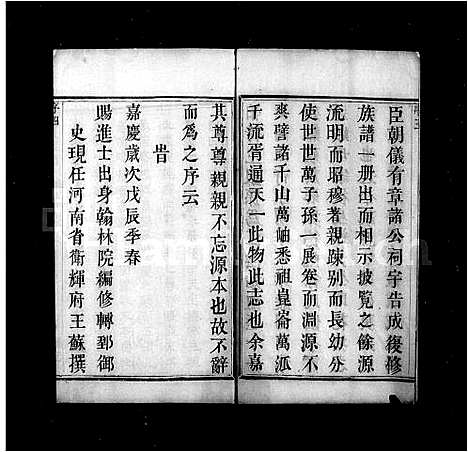 臣朝儀有章諸公祠宇告成復修
族譜一册出而相示披覧之餘源
流明而昭穆著親踈别而長幼分
使世世萬子孫一展卷而淵源不
爽譬諸千山萬岫悉祖崑崙萬泒
千流胥通天一此物此志也余嘉
其尊尊親親不忘源本也故不辭
而爲之序云
旹
嘉慶歲次戊辰季春
賜進士出身翰林院編修轉到御
史現任河南省衛輝府王蘇撰